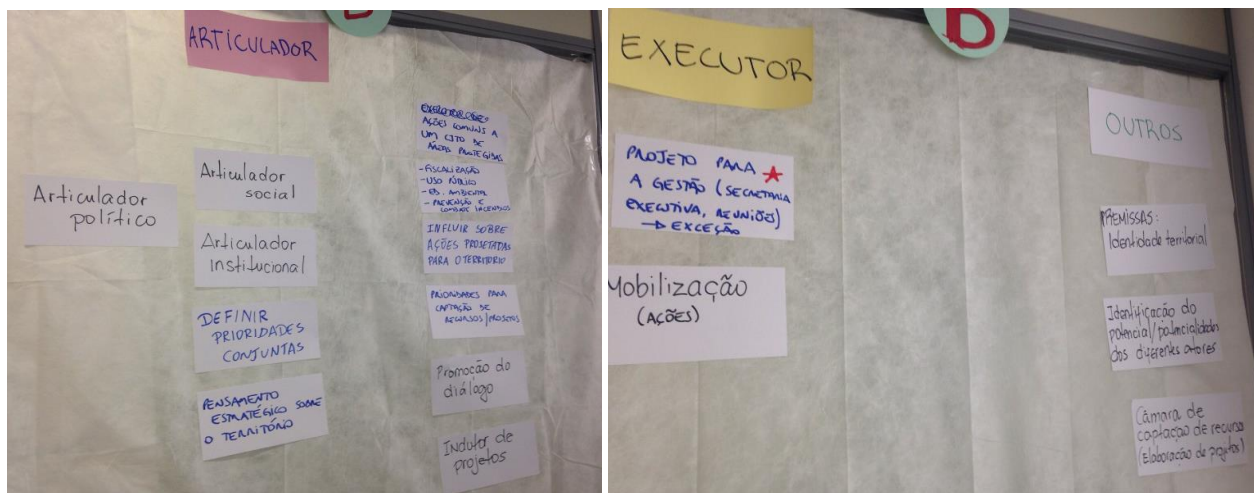 ARTICULADOR
Articulador
político
Articulador
social
Articulador
institucional
DEFINIR
PRIORIDADES
CONJUNTAS
PENSAMENTO
ESTRATÉGICO SOBRE
O TERRITÓRIO
AÇÕES COMUNS A
UM CJTO DE
ÁREAS PROTEGIDAS
- FISCALIZAÇÃO
- USO PÚBLICO
- ED. AMBIENTAL
- PREVENÇÃO E
COMBATE INCÊNDIOS
INFLUIR SOBRE
AÇÕES PROJETADAS
PARA O TERRITÓRIO
PRIORIDADES PARA
CAPTAÇÃO DE
RECURSOS/PROJETOS
Promoção do
diálogo
Indutor de
projetos
EXECUTOR
D
PROJETO PARA
A GESTÃO (SECRETARIA
EXECUTIVA, REUNIÕES)
→ EXCEÇÃO
Mobilização
(AÇÕES)
OUTROS
PREMISSAS:
Identidade territorial
Identificação do
potencial/potencialidades
dos diferentes atores
Câmara de
captação de recurso
(Elaboração de projetos)